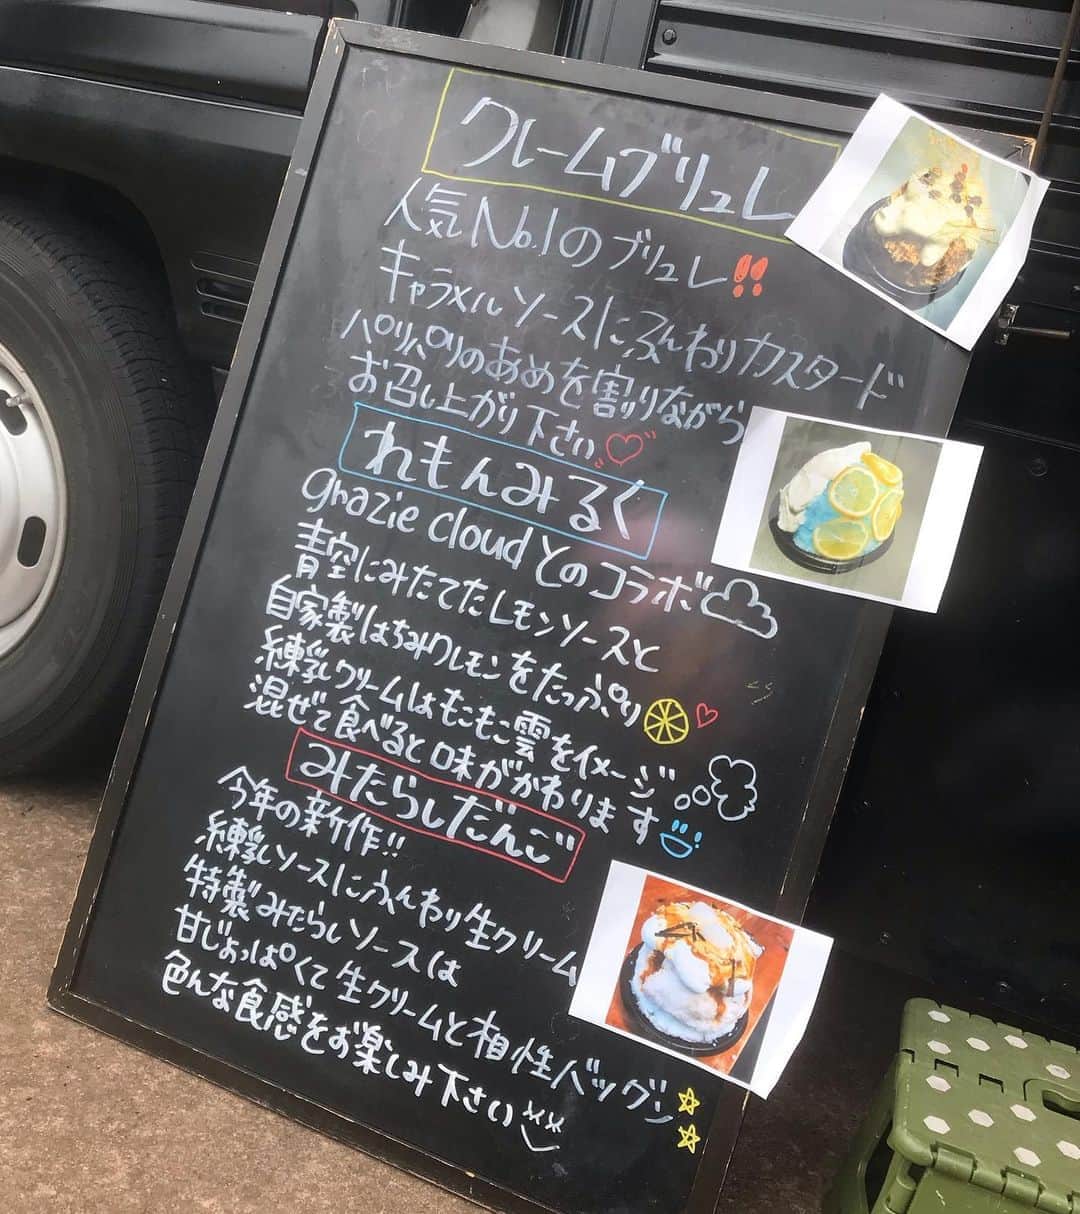 クレームブリュレ
人気No.1のブリュレ!!
キャラメルソースにふんわりカスタード
パリパリのあめを割りながら
お召し上がり下さい♡
れもんみるく
grazie cloudとのコラボ
青空にみたてたレモンソースと
自家製はちみつレモンをたっぷり
練乳クリームはもこもこ雲をイメージ
混ぜて食べると味がかわります
みたらしだんご
今年の新作!!
練乳ソースにふんわり生クリーム
特製みたらしソースは
甘じょっぱくて生クリームと相性バツグン
色んな食感をお楽しみ下さい